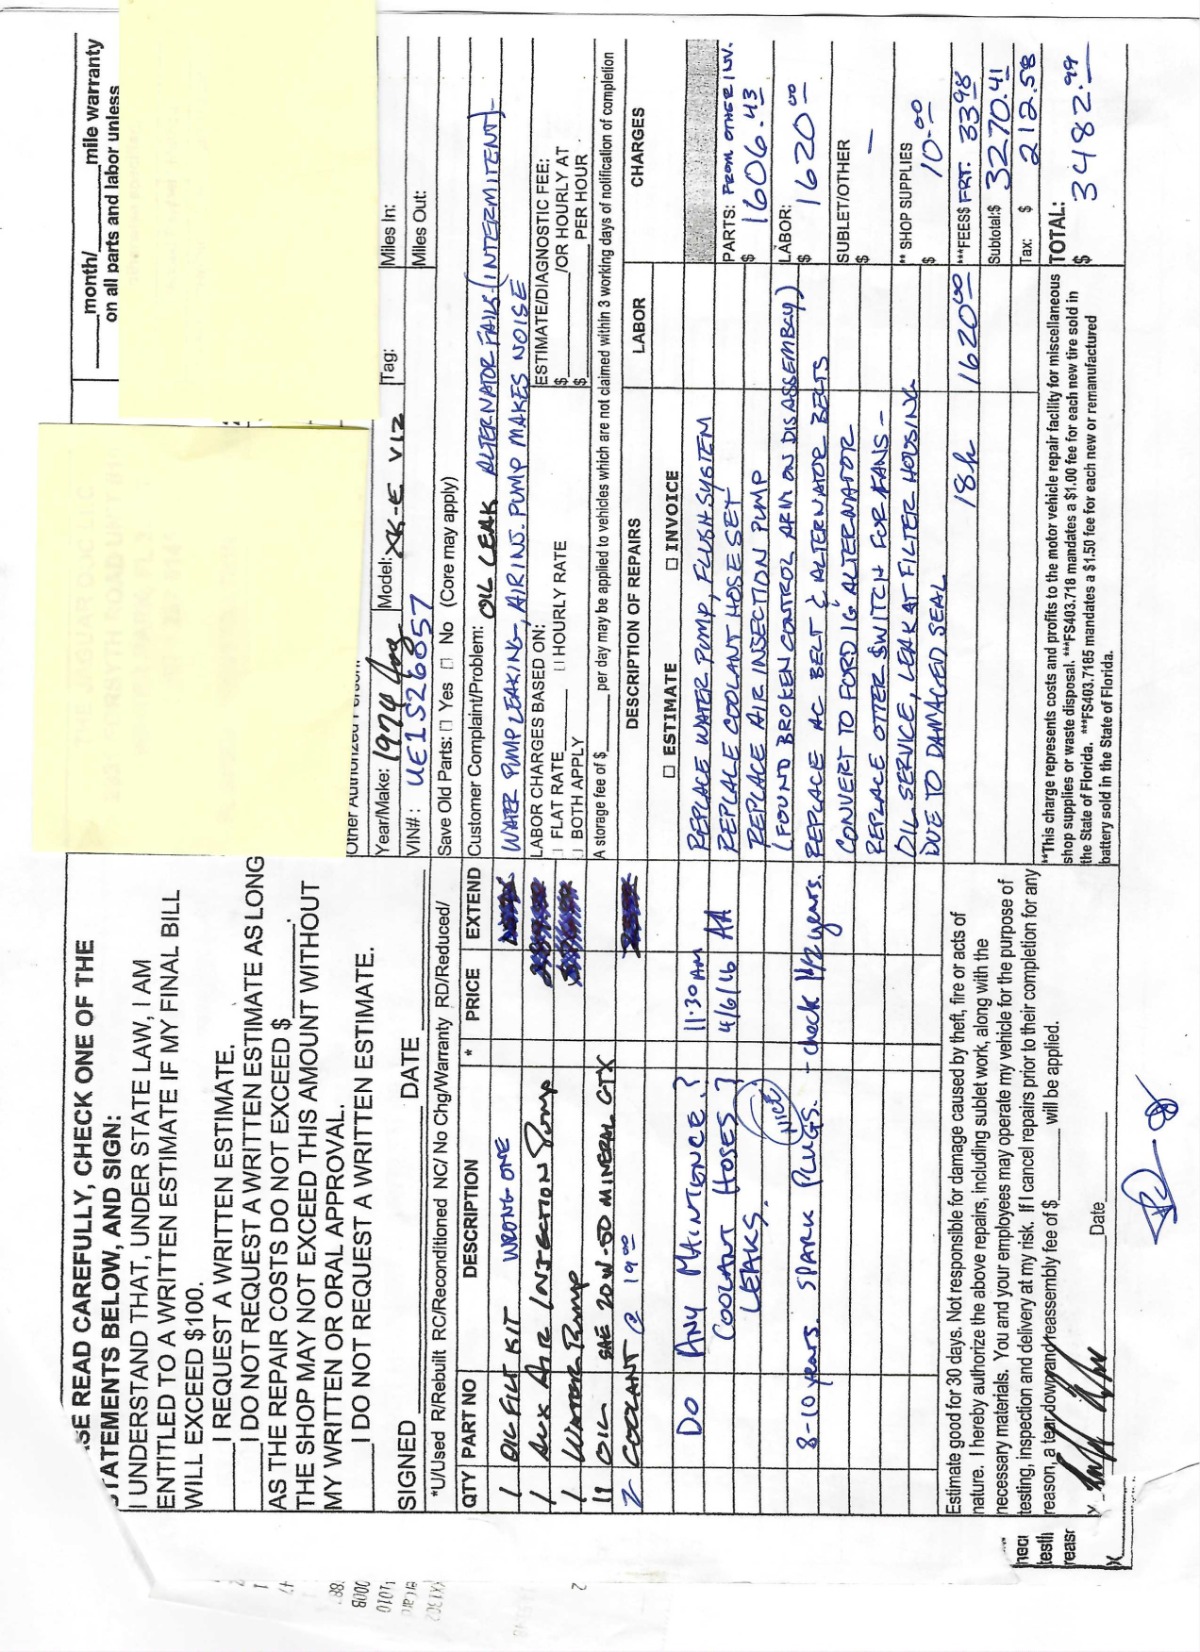 ___month/___mile warranty
on all parts and labor unless
.SE READ CAREFULLY, CHECK ONE OF THE
STATEMENTS BELOW, AND SIGN:
I UNDERSTAND THAT, UNDER STATE LAW, I AM
ENTITLED TO A WRITTEN ESTIMATE IF MY FINAL BILL
WILL EXCEED $100.
____I REQUEST A WRITTEN ESTIMATE.
____I DO NOT REQUEST A WRITTEN ESTIMATE AS LONG
AS THE REPAIR COSTS DO NOT EXCEED $______.
THE SHOP MAY NOT EXCEED THIS AMOUNT WITHOUT
MY WRITTEN OR ORAL APPROVAL.
____I DO NOT REQUEST A WRITTEN ESTIMATE.
SIGNED ____ DATE ____
*U/Used R/Rebuilt RC/Reconditioned NC/ No Chg/Warranty RD/Reduced/
QTY PART NO DESCRIPTION * PRICE EXTEND
1 OIL FILT KIT WRONG ONE
1 AUX AIR INJECTION PUMP
1 WATER PUMP
11 OIL SAE 20W-50 MINERAL GTX
2 COOLANT @ 19.00
DO ANY MAINTENCE? 11:30 AM
COOLANT HOSES? 4/6/16 AA
LEAKS. NICE
8-10 years. SPARK PLUGS. - check 1 1/2 years.
Estimate good for 30 days. Not responsible for damage caused by theft, fire or acts of
nature. I hereby authorize the above repairs, including sublet work, along with the
necessary materials. You and your employees may operate my vehicle for the purpose of
testing, inspection and delivery at my risk. If I cancel repairs prior to their completion for any
reason, a tear down and reassembly fee of $______ will be applied.
X Date
Other Authorized Person
Year/Make: 1974 Jag Model: XK-E V12 Tag: Miles In:
VIN#: UE1S26057 Miles Out:
Save Old Parts: □ Yes □ No (Core may apply)
Customer Complaint/Problem: OIL LEAK ALTERNATOR FAILS (INTERMITENT) -
WATER PUMP LEAKING - AIR INJ. PUMP MAKES NOISE
LABOR CHARGES BASED ON: ESTIMATE/DIAGNOSTIC FEE:
FLAT RATE ____ HOURLY RATE $______/OR HOURLY AT
BOTH APPLY $______ PER HOUR
A storage fee of $____ per day may be applied to vehicles which are not claimed within 3 working days of notification of completion
DESCRIPTION OF REPAIRS LABOR CHARGES
□ ESTIMATE □ INVOICE
REPLACE WATER PUMP, FLUSH SYSTEM
REPLCALE COOLANT HOSE SET
REPLACE AIR INSECTION PUMP
(FOUND BROKEN CONTROL ARM ON DISASSEMBAY)
REPLACE AC BELT & ALTERNATOR BELTS
CONVERT TO FORD 1G ALTERNATOR
REPLACE OTTER SWITCH FOR FANS -
OIL SERVICE, LEAK AT FILTER HOUSING
DUE TO DAMAGED SEAL
18h 1620.00
PARTS: FROM OTHER INV.
$ 1606.43
LABOR:
$ 1620.00
SUBLET/OTHER
$ —
** SHOP SUPPLIES
$ 10.00
***FEES$ FRT: 33.98
Subtotal:$ 3270.41
Tax: $ 212.58
TOTAL:
$ 3482.99
**This charge represents costs and profits to the motor vehicle repair facility for miscellaneous
shop supplies or waste disposal. ***FS403.718 mandates a $1.00 fee for each new tire sold in
the State of Florida. ***FS403.7185 mandates a $1.50 fee for each new or remanufactured
battery sold in the State of Florida.